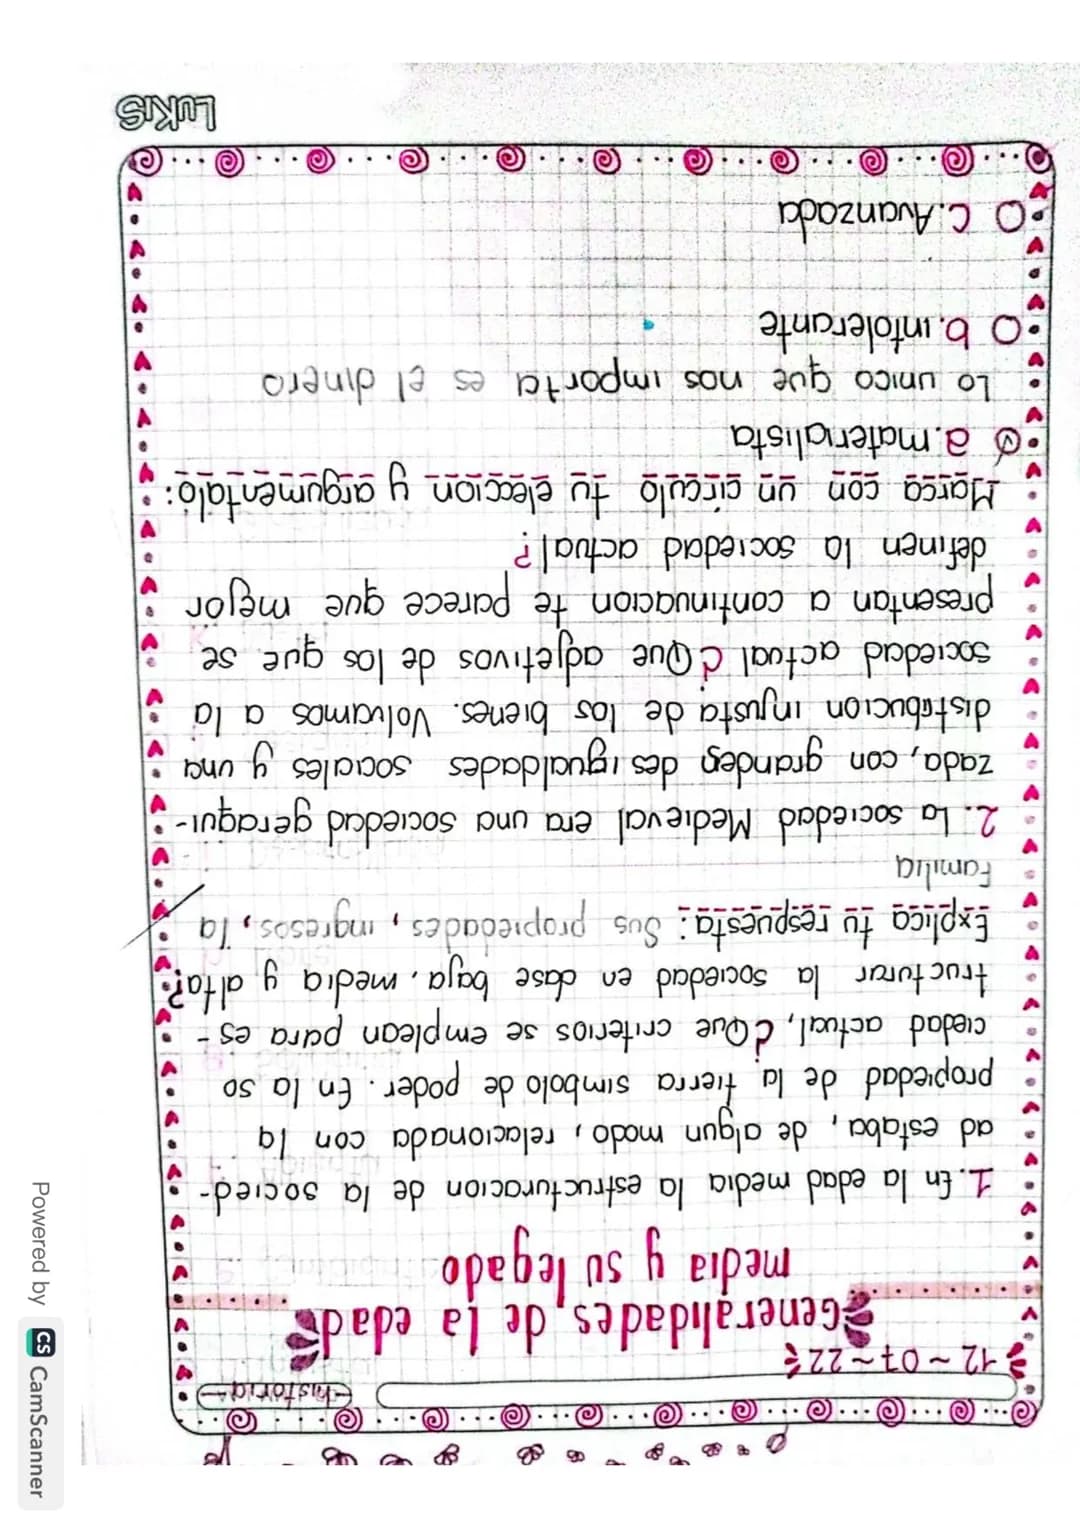 Historia
12~07~22
Generalidades de la edad
media y su legado
1. En la edad media la estructuracion de la socied-
ad estaba, de algun modo, relacionada con la
propiedad de la tierra simbolo de poder. En la so
ciedad actual, ¿Que criterios se emplean para es-
tructurar la sociedad en clase baja, media y alta?
Explica tu respuesta: Sus propiedades, ingresos, la
Familia
2. La sociedad Medieval era una sociedad geraqui-
zada, con grandes desigualdades sociales y una
distribucion injusta de los bienes. Volvamos a la
sociedad actual ¿Que adjetivos de los que se
presentan a continuacion te parece que mejor
definen la sociedad actual?
Marca con un circulo tu eleccion y argumentalo:
a. materialista
Lo unico que nos importa es el dinero
b. intolerante
C. Avanzada
LUKIS
Powered by CS CamScanner